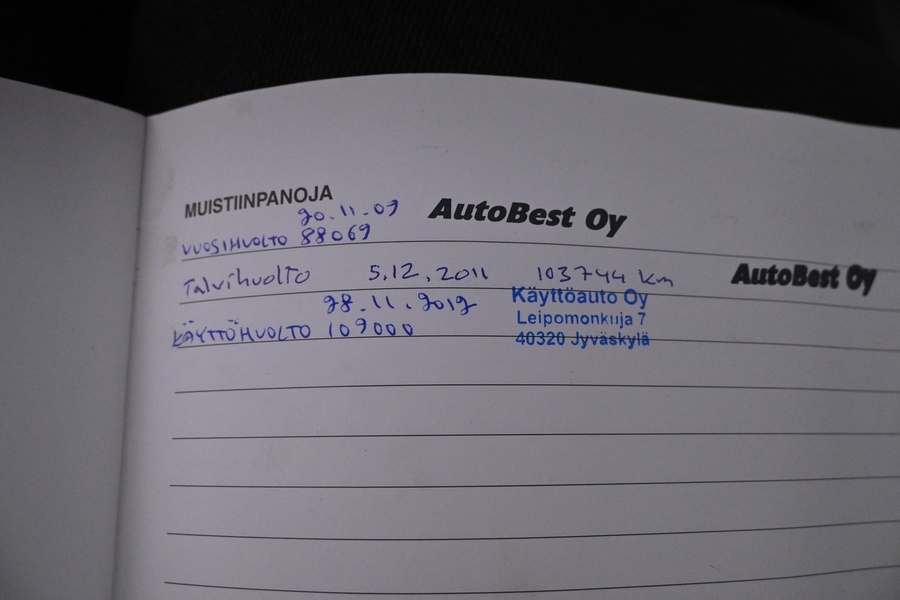 MUISTIINPANOJA
20.11.09 AutoBest Oy
VUOSIHUOLTO 88069
Talvihuolto 5.12.2011 103744 km AutoBest Oy
28.11.2012 Käyttöauto Oy
Leipomonkuja 7
KÄYTTÖHUOLTO 109000 40320 Jyväskylä